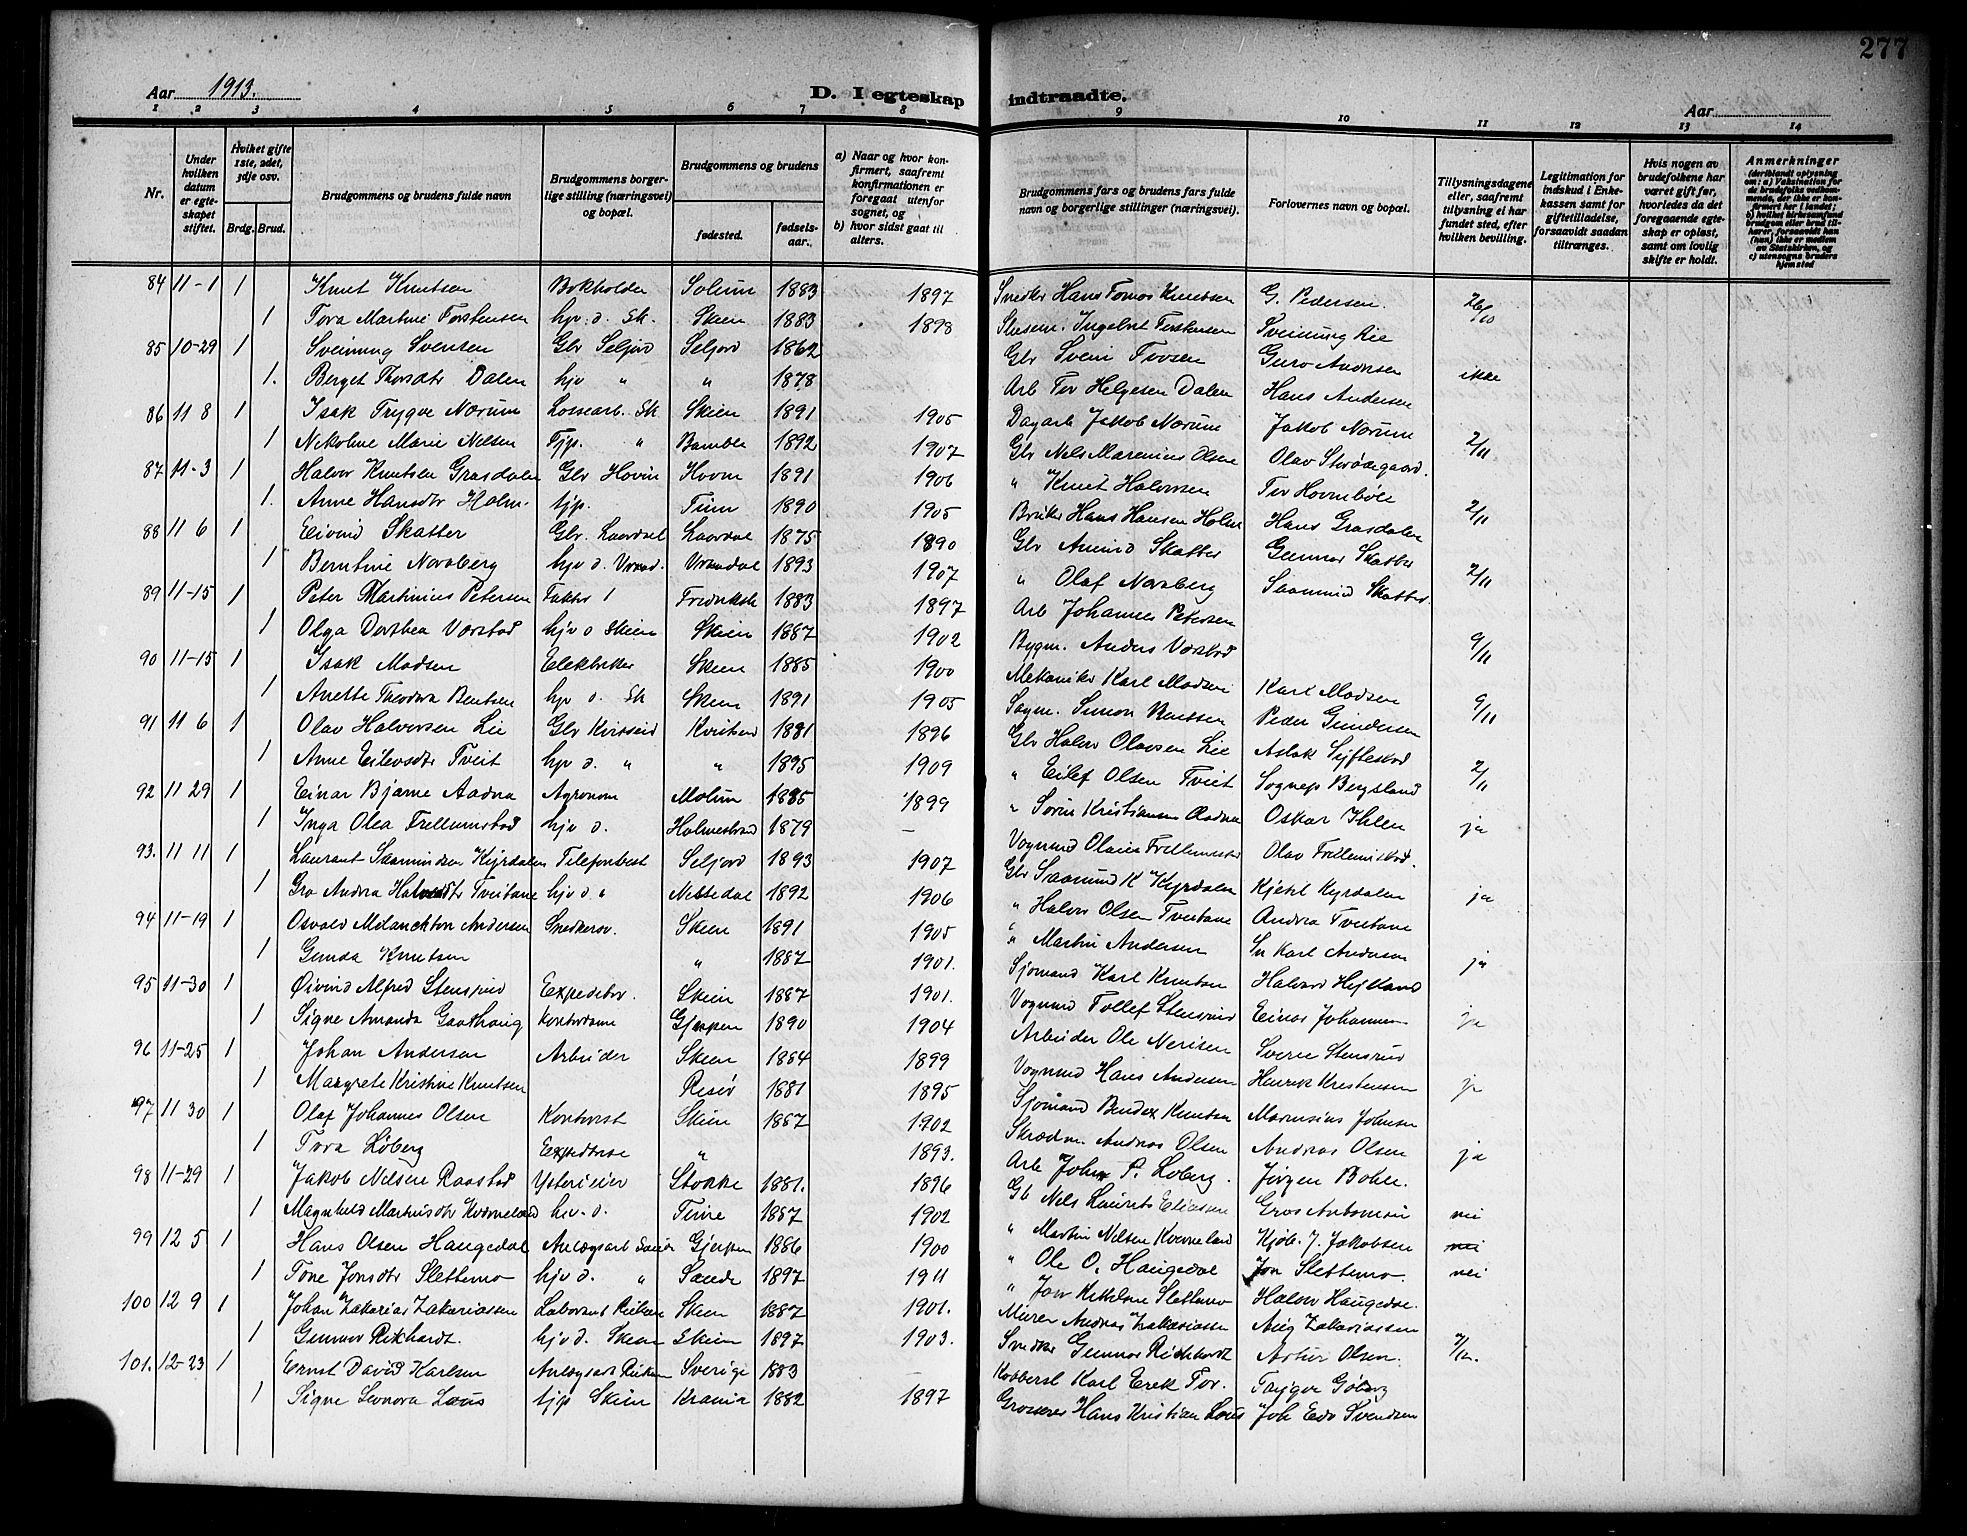 277
Aar 1913. D. I egteskap indtraadte. Aar
1 2 3 4 5 6 7 8 9 10 11 12 13 14
Nr.
Under hvilken datum er egteskapet stiftet.
Hvilket gifte 1ste, 2det, 3dje osv.
Brdg. Brud.
Brudgommens og brudens fulde navn
Brudgommens borgerlige stilling (næringsvei) og bopæl.
Brudgommens og brudens
fødested.
fødselsaar.
a) Naar og hvor konfirmert, saafremt konfirmationen er foregaat utenfor sognet, og
b) hvor sidst gaat til alters.
Brudgommens fars og brudens fars fulde navn og borgerlige stillinger (næringsvei).
Forlovernes navn og bopæl.
Tillysningsdagene eller, saafremt tillysning ei har fundet sted, efter hvilken bevilling.
Legitimation for indskud i Enkekassen samt for giftetilladelse, forsaavidt saadan tiltrænges.
Hvis nogen av brudefolkene har været gift før, hvorledes da det foregaaende egteskap er opløst, samt om lovlig skifte er holdt.
Anmerkninger (deriblandt oplysning om: a) Vaksination for de brudefolks vedkommende, der ikke er konfirmert her i landet; b) hvilket kirkesamfund brudgom eller brud tilhører, forsaavidt han (hun) ikke er medlem av Statskirken, og c) utensogns bruders hjemsted
84 11-1 1 Knut Knutsen Bokholder Solum 1883 1897 Snedker Hans Tomas Knutsen G. Pedersen. 26/10
1 Tora Martine Torstensen hjv. d. Sk. Skien 1883 1898 Ingebret Torstensen Sveinung Lie
85 10-29 1 Sveinung Svensen Gbr Seljord Seljord 1862 Gbr Svein Tovsen Guro Andersen
1. Berget Thorsdtr Dalen hjv " " 1878 Arb Tor Helgesen Dalen Hans Andersen ikke
86 11 8 1 Isak Trygve Norum Lossearb. Sk Skien 1891 1905 Dagarb Jakob Norum Jakob Norum
1 Nikoline Marie Nilsen Tjp. " Bamble 1892 1907 Gbr Nils Marenius Olsen Olav Strødegaard. 2/11
87 11-3 1 Halvor Knutsen Grasdalen Gbr Hovin Hovin 1891 1906 " Knut Halvorsen Tor Hovinbøle
1. Anne Hansdtr Holm. tjp. Tinn 1890 1905 Bruker Hans Hansen Holm Hans Grasdalen 2/11
88 11 6 1 Eivind Skatter Gbr. Laardal Laardal 1875 1890 Gbr Amund Skatter Gunnar Skatter
1 Berntine Norsberg hjv d. Vraad. Vraadal 1893 1907 " Olaf Norsberg Saamund Skatter. 2/11
89 11-15 1 Peter Martinius Petersen Faktor 1 Fredrikst 1883 1897 Arb Johannes Petersen
1 Olga Dorthea Vorstad hjv d Skien Skien 1887 1902 Bygm. Anders Vorstad 9/11
90 11-15 1 Isak Madsen Elektriker Skien 1885 1900 Mekaniker Karl Madsen Karl Madsen
1 Anette Theodora Bentsen hjv d. Sk Skien 1891 1905 Sagm. Simon Bentsen Peder Gundersen 9/11
91 11 6 1 Olav Halvorsen Lie Gbr Kviteseid Kviteseid 1881 1896 Gbr Halvor Olavsen Lie Aslak Siftestad
1 Anne Eilevsdtr Tveit hjv d. " " 1895 1909 " Eilef Olsen Tveit Sognep Bergsland 2/11
92 11 29 1 Einar Bjarne Aadna Agronom Molum 1885 1899 " Søren Kristiansen Aadna Oskar Ihlen
1 Inga Olea Frellumstad hjv d. Holmestrand 1879 – Vognmd Olaus Frellumstad Olav Frellumstad. ja
93. 11 11 1 Laurant Saamundsen Kyrdalen Telefonbest Seljord 1893 1907 Gbr Saamund K Kyrdalen Kjetil Kyrdalen
1 Gro Andrea Halvorsdtr Tveitane hjv d " Nissedal 1892 1906 " Halvor Olsen Tveitane Andrea Tveitane ja
94 11-19 1 Osvald Melanckton Andersen Snedkersv. Skien 1891 1905 " Martin Andersen Sn Karl Andersen
1 Gunda Knutsen " 1887 1901. Sjømand Karl Knutsen Halvard Hejlland ja
95 11-30 1 Øivind Alfred Stensrud Expeditør. Skien 1887 1901. Vognmd Tollef Stensrud Einar Johannesen
1 Signe Amanda Gaathaug Kontordame Gjerpen 1890 1904 Arbeider Ole Nerisen Sverre Stensrud ja
96 11-25 1 Johan Andersen Arbeider Skien 1884 1899 Vognmd Hans Andersen Henrik Kristensen
1 Margrete Kristine Knutsen Risør 1881 1895 Sjømand Bendex Knutsen Marensius Johnsen ja
97 11 30 1 Olaf Johannes Olsen Kontorist Skien 1887 1902 Skrædm. Andreas Olsen Andreas Olsen
1 Tora Løberg Expeditrise " 1893. Arb John P. Løberg. Jørgen Bohle. ja
98 11-29 1 Jakob Nilsen Raastad Ysterieier Stokke 1881. 1896 Gb Nils Laurits Eliassen
1 Magnhild Martinsdtr Kverneland hjv. d. Time 1887 1902 " Martin Nilsen Kverneland Kjøb. J. Jakobsen nei
99 12 5 1 Hans Olsen Haugedal Anlægsarb Gjerpen 1886 1900 " Ole O. Haugedal Jon Slettemo. nei
1 Tone Jonsdtr Slettemo hjv d. " Sande 1897 1911 " Jon Kittelsen Slettemo Halvor Haugedal. nei
100 12 9 1 Johan Zakarias Zakariassen Laborant Rjukan Skien 1887 1901. Murer Andreas Zakariassen Aug Zakariassen
1 Gunvor Rikhardt. hjv d. Skien Skien 1897 1903. Snedker Gunnar Rickhardt Artur Olsen. 7/12.
101. 12-23 1 Ernst David Karlsen Anlægsarb Rjukan Sverige 1883 – Kobbersl Karl Erek Tor. Trygve Goberg
1 Signe Leonora Lous tjp Skien Krania 1882 1897 Grosserer Hans Kristian Lous Joh Edv Svendsen